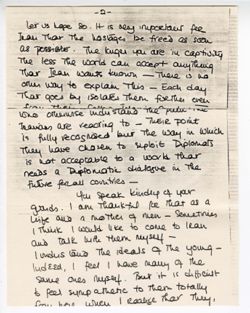 -2-
Let us hope so. It is very important for
Iran that the hostages be freed as soon
as possible. The longer you are in captivity
the less the world can accept anything
that Iran wants known – There is no
other way to explain this – Each day
that goes by isolates them further even
who otherwise understand the
Iranians are reacting to – These point
is fully recognised but the way in which
They have chosen to exploit Diplomats
is not acceptable to a world that
needs a Diplomatic dialogue in the
future for all countries –
You speak kindly of your
guards. I am thankful for that as a
wife and a mother of men – Sometimes
I think I would like to come to Iran
and talk with them myself –
I understand the ideals of the young –
Indeed, I feel I have many of the
same ones myself. But it is difficult
to feel sympathetic to them totally
when I realise that they,